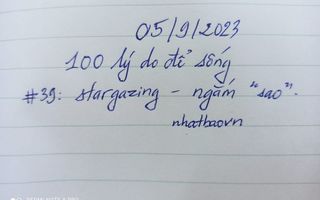 05/9/2023
100 lý do để sống
#39: stargazing - ngắm "sao".
nhatbaovn